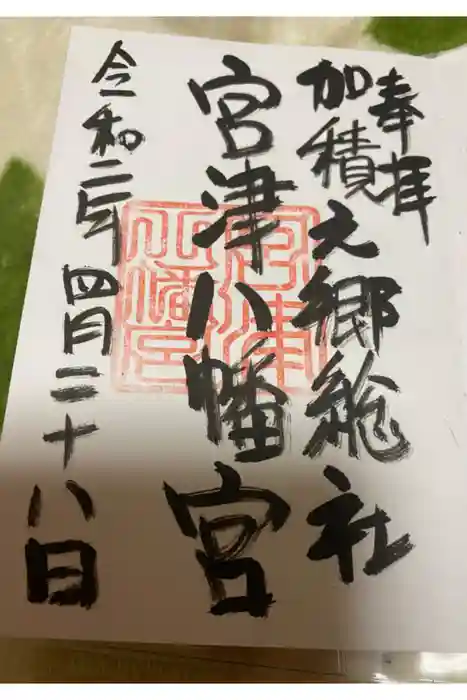 奉拝
加積元郷総社
宮津八幡宮
令和二年四月二十八日
宮津八幡宮